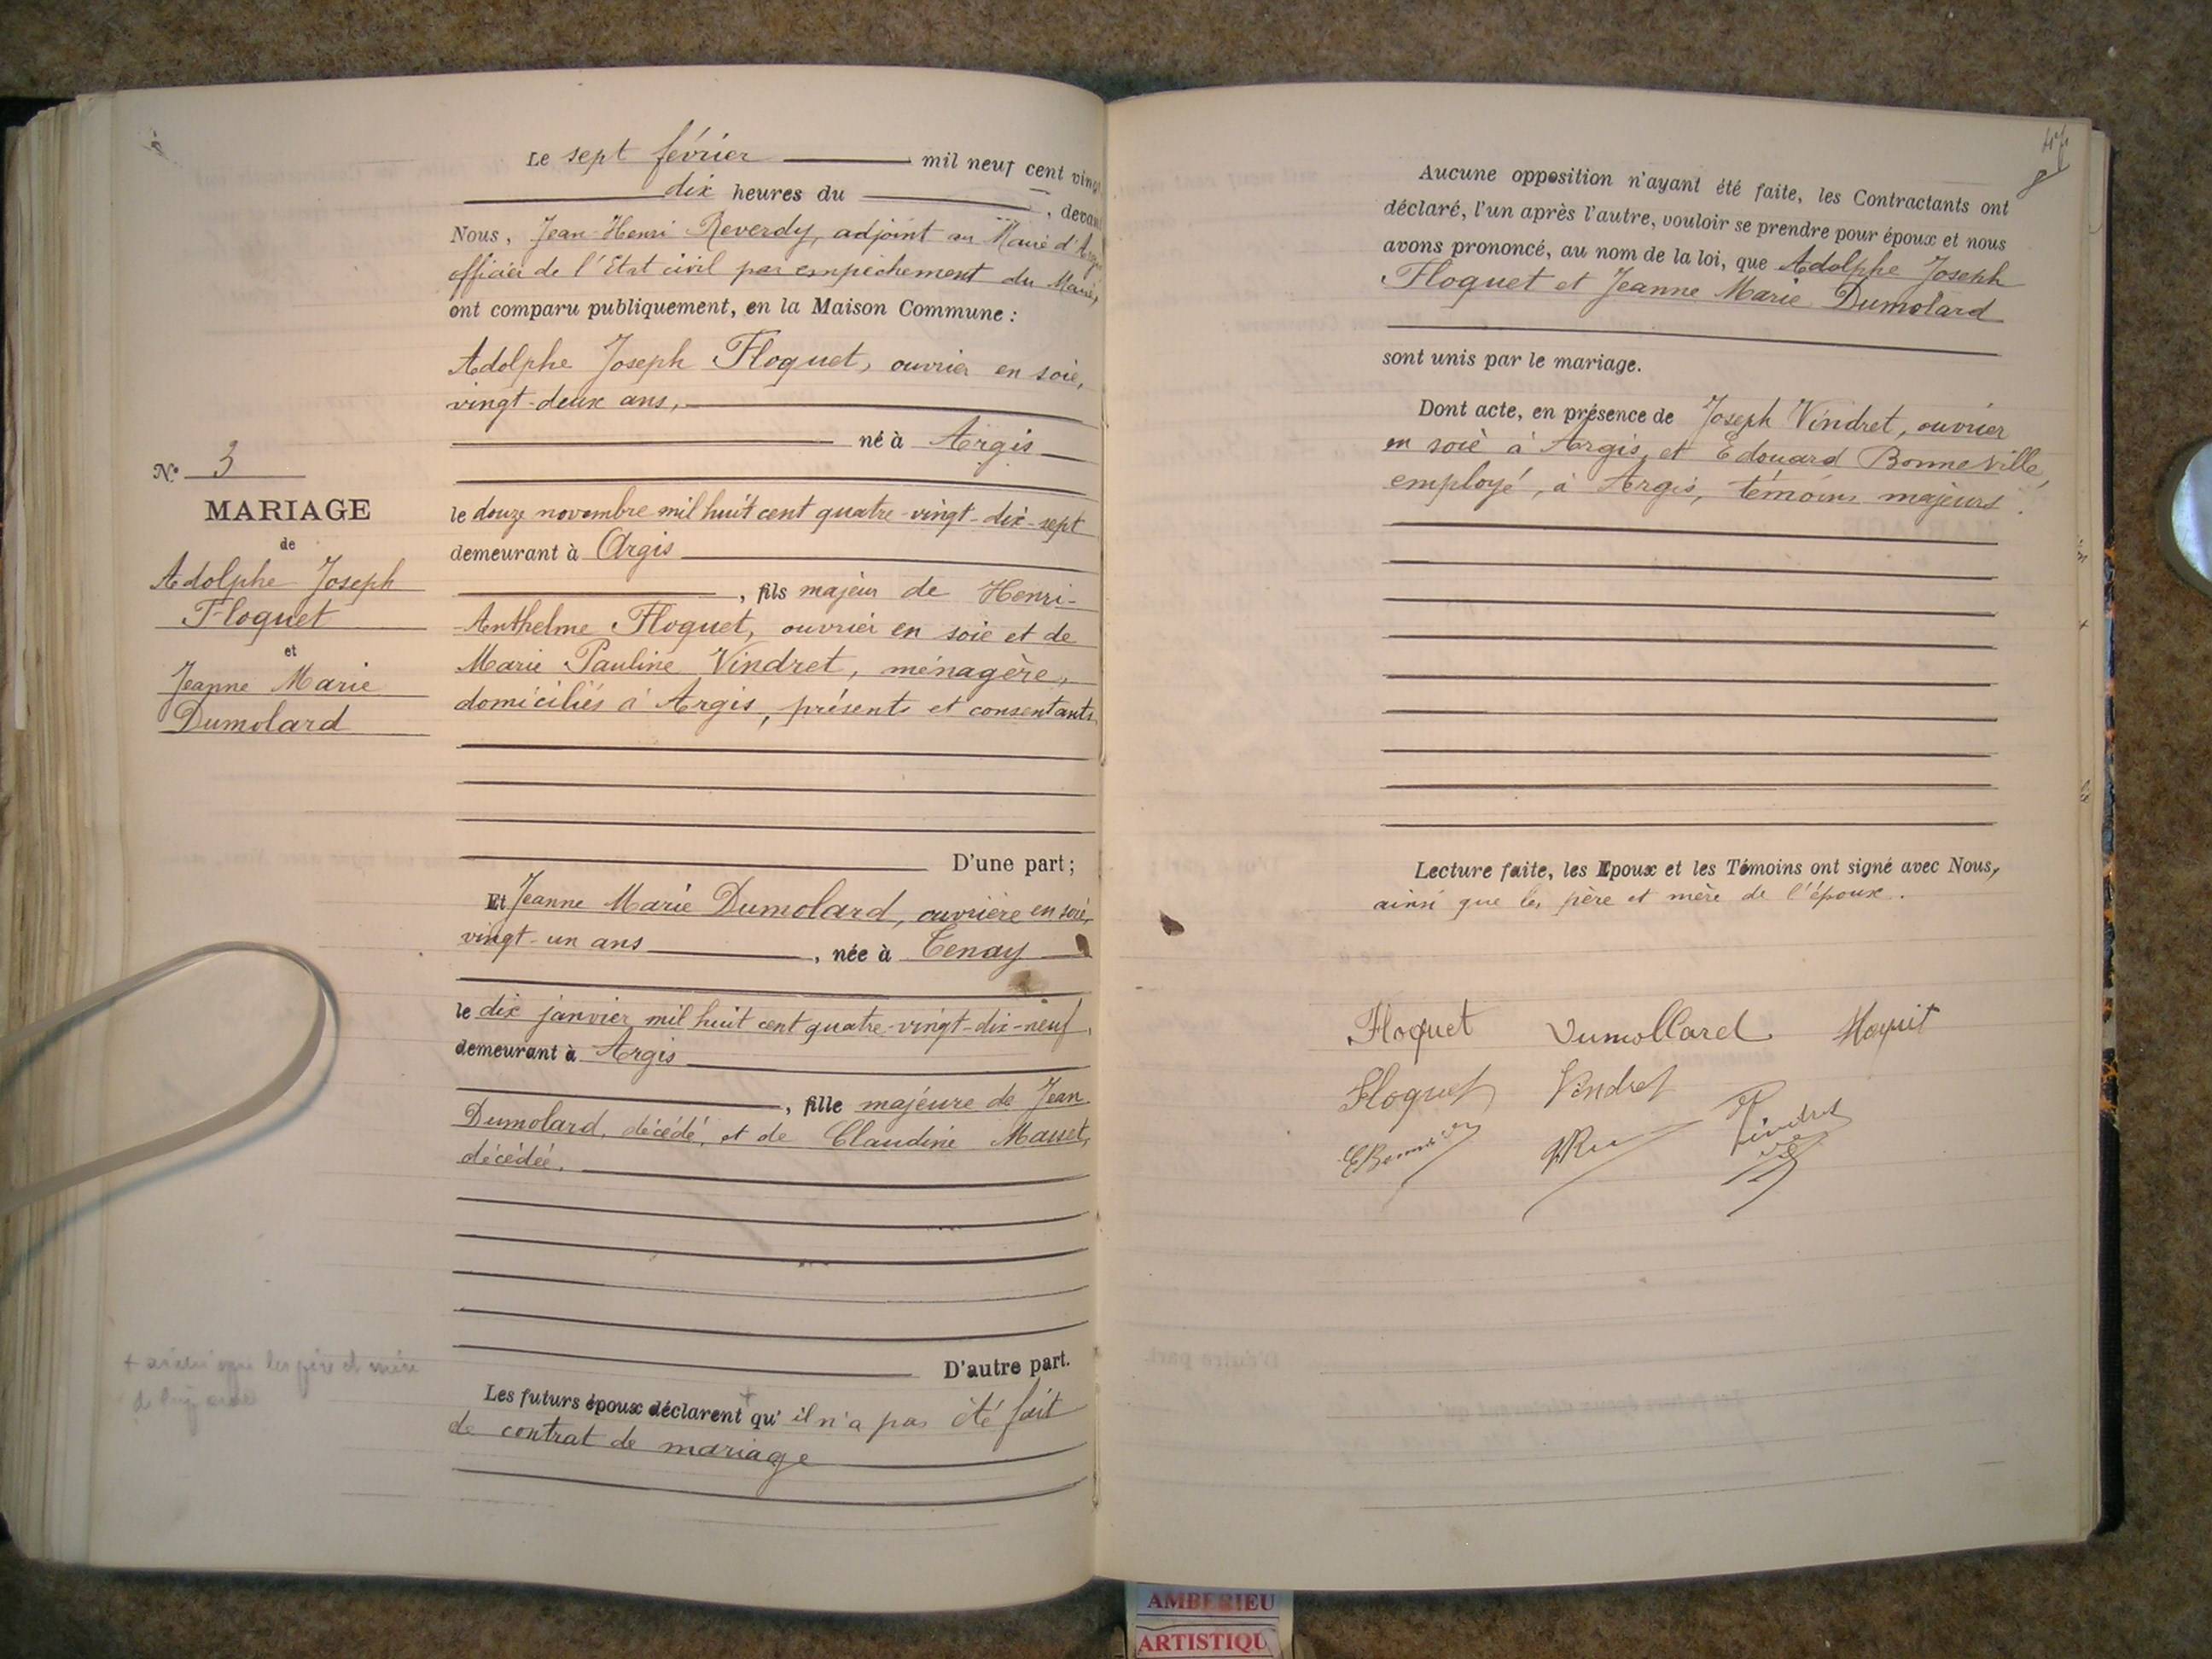 Le sept février mil neuf cent vingt
dix heures du , devant
Nous, Jean-Henri Reverdy, adjoint au Maire d'Argis
officier de l'Etat civil par empêchement du Maire,
ont comparu publiquement, en la Maison Commune :
Adolphe Joseph Floquet, ouvrier en soie,
vingt-deux ans,
né à Argis
le douze novembre mil huit cent quatre-vingt-dix-sept
demeurant à Argis
, fils majeur de Henri-
Anthelme Floquet, ouvrier en soie et de
Marie Pauline Vindret, ménagère,
domiciliés à Argis, présents et consentants
D'une part ;
Et Jeanne Marie Dumolard, ouvrière en soie,
vingt-un ans , née à Tenay
le dix janvier mil huit cent quatre-vingt-dix-neuf,
demeurant à Argis
, fille majeure de Jean
Dumolard, décédé, et de Claudine
décédée.
D'autre part.
Les futurs époux déclarent + qu' il n'a pas été fait
de contrat de mariage
N° 3
MARIAGE
de
Adolphe Joseph
Floquet
et
Jeanne Marie
Dumolard
+ ainsi que les père et mère
Aucune opposition n'ayant été faite, les Contractants ont
déclaré, l'un après l'autre, vouloir se prendre pour époux et nous
avons prononcé, au nom de la loi, que Adolphe Joseph
Floquet et Jeanne Marie Dumolard
sont unis par le mariage.
Dont acte, en présence de Joseph Vindret, ouvrier
en soie à Argis, et Edouard Bonneville,
employé, à Argis, témoins majeurs.
Lecture faite, les Epoux et les Témoins ont signé avec Nous,
ainsi que les père et mère de l'époux.
Floquet Dumollard
Floquet Vindret
Vindret
AMBERIEU
ARTISTIQU